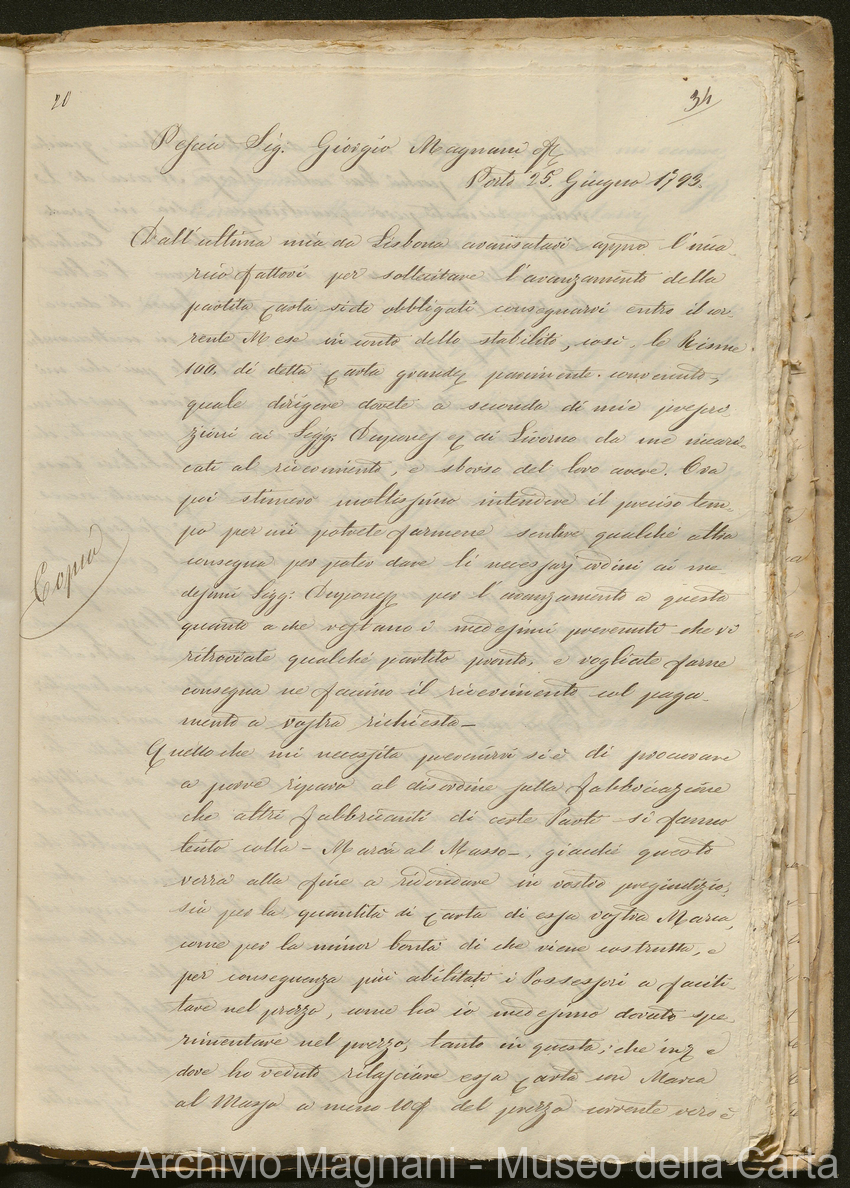 20
34
Pescia Sig: Giorgio Magnani
Porto 25. Giugno 1793.
Dall'ultima mia da Lisbona avanzatavi appro l'inca-
rico fattovi per sollecitare l'avanzamento della
partita carta siete obbligati consegnarvi entro il cor-
rente Mese in conto dello stabilito, così le Risme
100. di detta carta grande parimente convenuto,
quale dirigere dovete a seconda di mie prepo-
zioni ai Sigg: Dupouy di Livorno da me incari-
cati al ricevimento, e sborso del loro avere. Ora
poi stimero moltissimo intendere il preciso tem-
po per cui potrete farmene sentire qualche altra
consegna per poter dare li necessarj ordini ai me-
desimi Sigg: Dupouy per l'avanzamento a questa
quanto a che restano i medesimi prevenuti che vi
ritroviate qualche partita pronta, e vogliate farne
consegna ne faccino il ricevimento col paga-
mento a vostra richiesta_
Quello che mi necessita prevenirvi si è di procurare
a porre riparo al disordine sulla fabbricazione
che altri fabbricanti di coste Parti si fanno
lecito colla - Marca al Masso -, giacche questo
verra alla fine a ridondare in vostro pregiudizio,
sia per la quantità di carta di essa vostra Marca,
come per la minor bontà di che viene costrutta, e
per conseguenza più abilitati i Possessori a facili-
tare nel prezzo, come ho io medesimo dovuto spe-
rimentare nel prezzo, tanto in questa, che in
dove ho veduto rilasciare essa carta con Marca
al Masso a meno del prezzo corrente vero è
Copia
Archivio Magnani - Museo della Carta